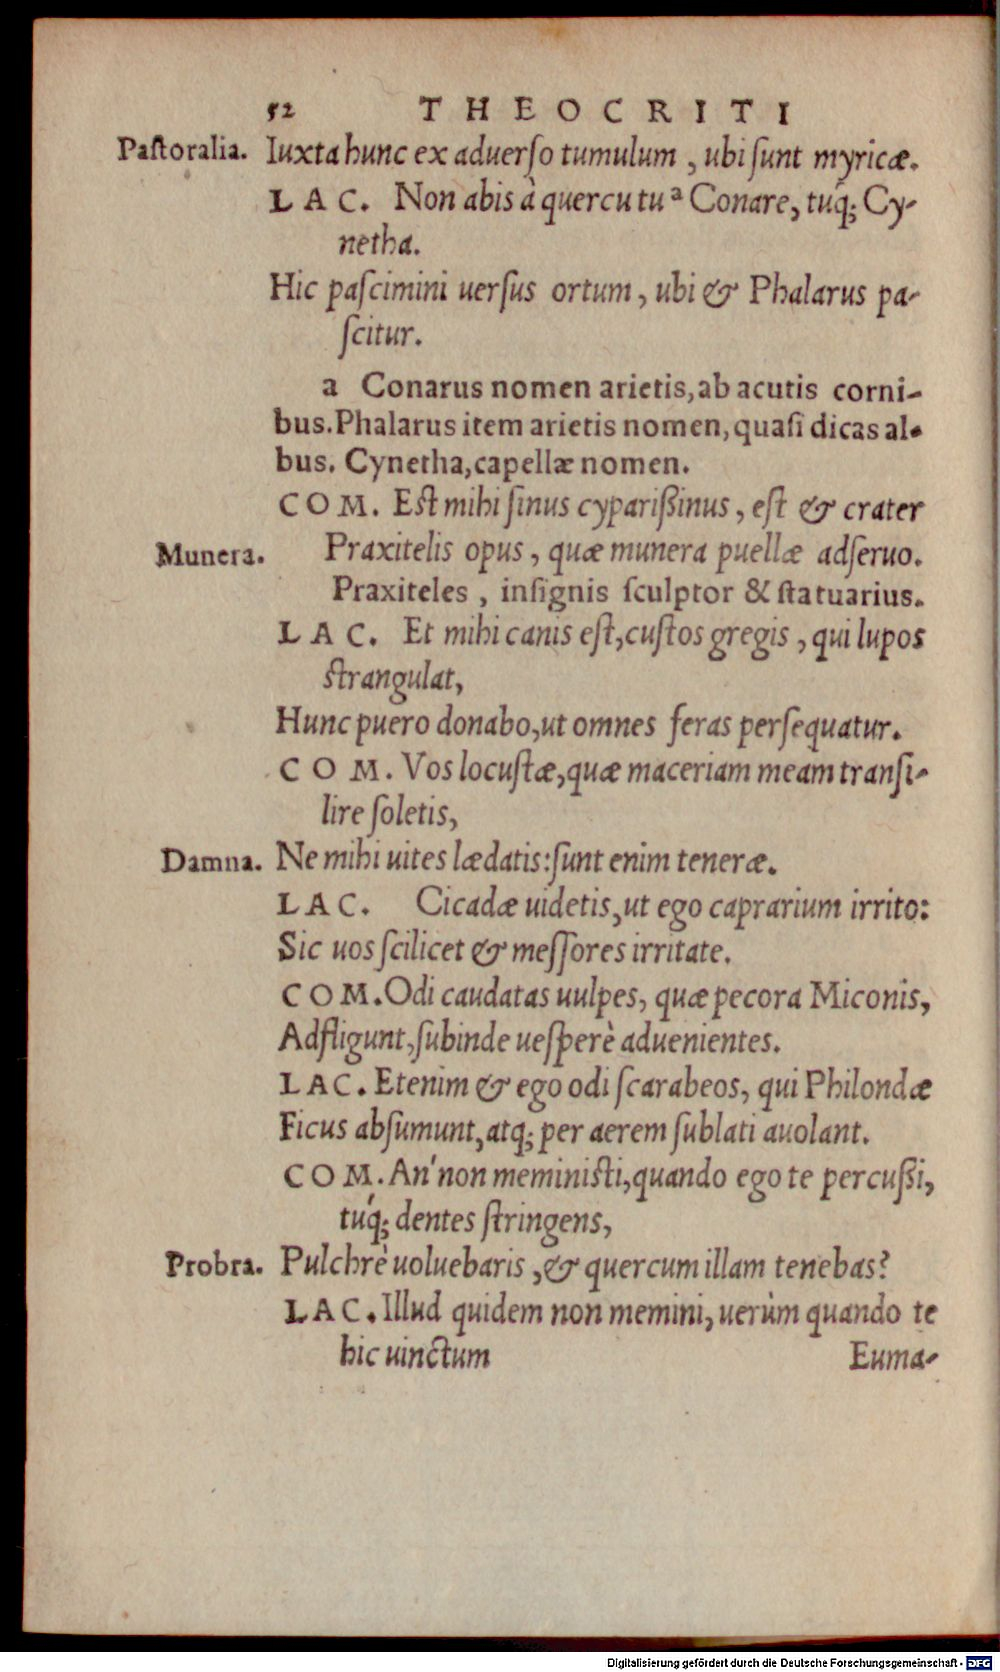 52 THEOCRITI
Pastoralia. Iuxta hunc ex aduerſo tumulum, ubi ſunt myricæ.
LAC. Non abis à quercu tu ᵃ Conare, tuq́; Cy-
netha.
Hic paſcimini uerſus ortum, ubi & Phalarus pa-
ſcitur.
a Conarus nomen arietis, ab acutis corni-
bus. Phalarus item arietis nomen, quaſi dicas al-
bus. Cynetha, capellæ nomen.
COM. Eſt mihi ſinus cyparißinus, eſt & crater
Munera. Praxitelis opus, quæ munera puellæ adſeruo.
Praxiteles, inſignis ſculptor & ſtatuarius.
LAC. Et mihi canis eſt, cuſtos gregis, qui lupos
ſtrangulat,
Hunc puero donabo, ut omnes feras perſequatur.
COM. Vos locuſtæ, quæ maceriam meam tranſi-
lire ſoletis,
Damna. Ne mihi uites lædatis: ſunt enim teneræ.
LAC. Cicadæ uidetis, ut ego caprarium irrito:
Sic uos ſcilicet & meſſores irritate.
COM. Odi caudatas uulpes, quæ pecora Miconis,
Adfligunt, ſubinde ueſperè aduenientes.
LAC. Etenim & ego odi ſcarabeos, qui Philondæ
Ficus abſumunt, atq; per aerem ſublati auolant.
COM. An' non meminiſti, quando ego te percußi,
tuq́; dentes ſtringens,
Probra. Pulchrè uoluebaris, & quercum illam tenebas?
LAC. Illud quidem non memini, uerùm quando te
hic uinctum Euma-
Digitalisierung gefördert durch die Deutsche Forschungsgemeinschaft - DFG